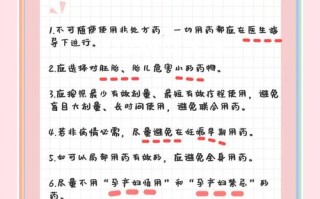 1.不可随便使用非处方药 一切用药都应在医生指
导下进行。
2.应选择对胚胎、胎儿危害小的药物。
3.应按照最少有效剂量、最短有效疗程使用，避免
盲目大剂量、长时间使用，避免联合用药。
4.若非病情必需，尽量避免在妊娠早期用药。
5.如可以局部用药有效的，应避免全身用药。
6.尽量不用“孕产妇慎用”和“孕产妇禁忌”的
药。